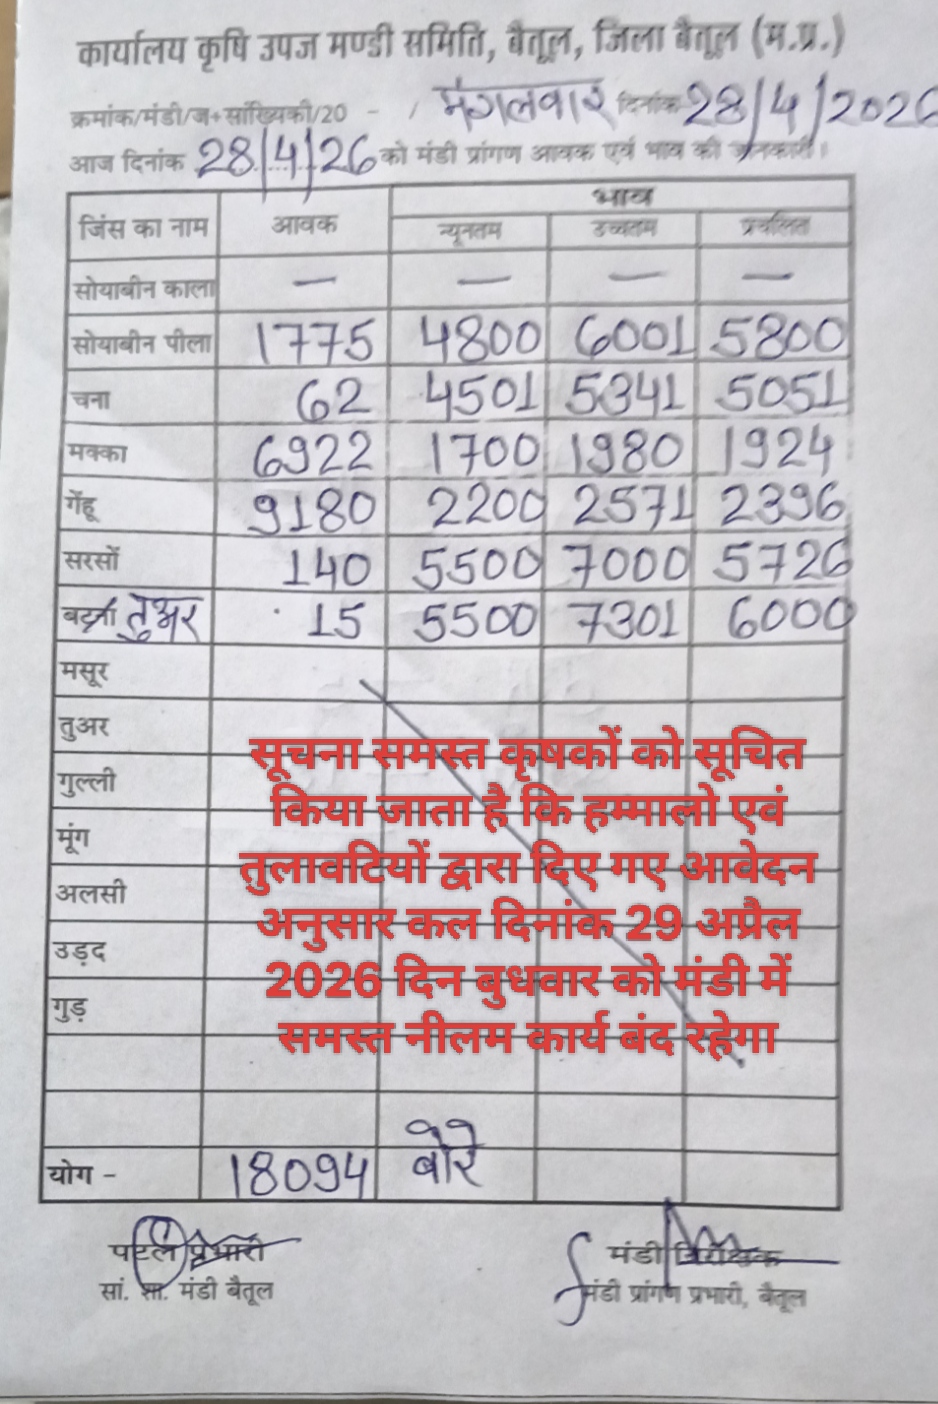 कार्यालय कृषि उपज मण्डी समिति, बैतूल, जिला बैतूल (म.प्र.)
क्रमांक/मंडी/ज+सांख्यिकी/20 - / मंगलवार दिनांक 28/4/2026
आज दिनांक 28/4/26 को मंडी प्रांगण आवक एवं भाव की जानकारी।
जिंस का नाम आवक भाव
न्यूनतम उच्चतम प्रचलित
सोयाबीन काला — — — —
सोयाबीन पीला 1775 4800 6001 5800
चना 62 4501 5341 5051
मक्का 6922 1700 1980 1924
गेंहू 9180 2200 2571 2396
सरसों 140 5500 7000 5726
तुअर 15 5500 7301 6000
मसूर
तुअर
गुल्ली
मूंग
अलसी
उड़द
गुड़
सूचना समस्त कृषकों को सूचित
किया जाता है कि हम्मालो एवं
तुलावटियों द्वारा दिए गए आवेदन
अनुसार कल दिनांक 29 अप्रैल
2026 दिन बुधवार को मंडी में
समस्त नीलम कार्य बंद रहेगा
योग - 18094 बोरे
प्रभारी मंडी निरीक्षक
सां. शा. मंडी बैतूल मंडी प्रांगण प्रभारी, बैतूल